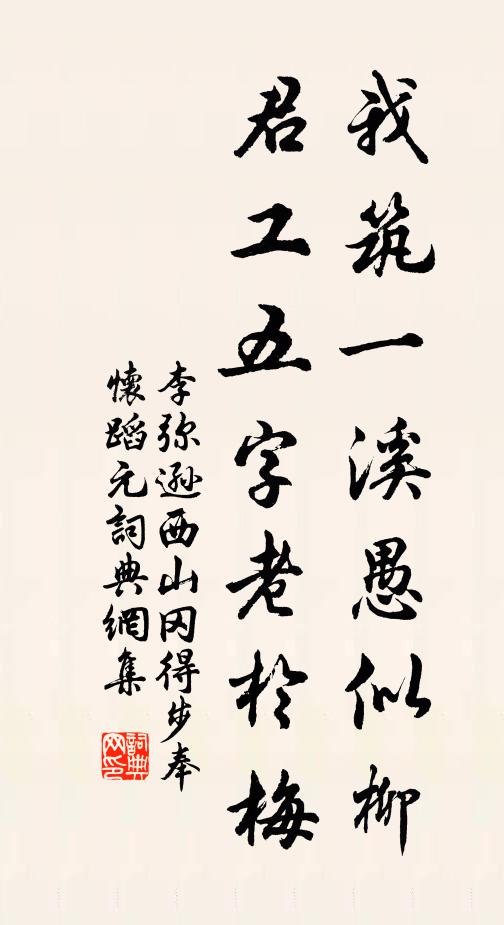 我筑一溪愚似柳
君工五字老於梅
李弥遜西山冈得步奉
懷蹈元詞典網集
詞典网印